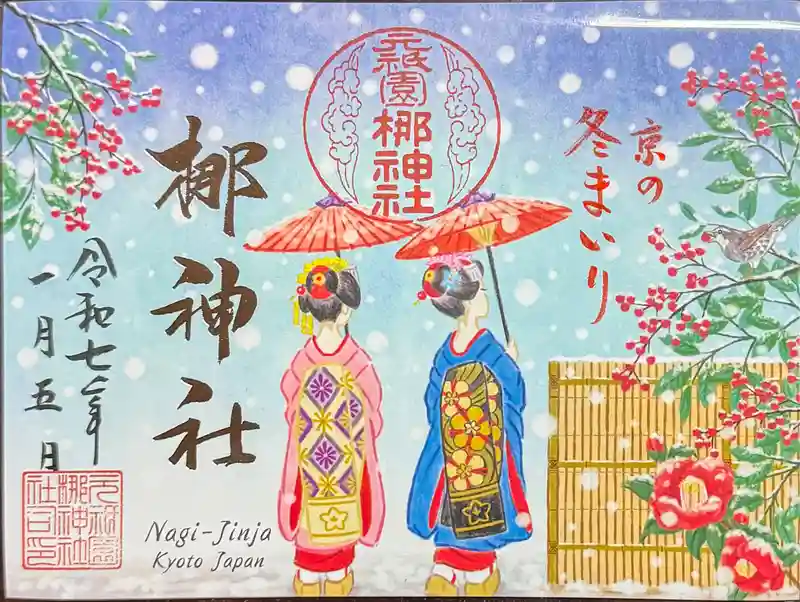 京の
冬まいり
元祇園
梛神社
梛神社
令和七年
一月五日
元祇園
梛神社
社司印
Nagi-Jinja
Kyoto Japan